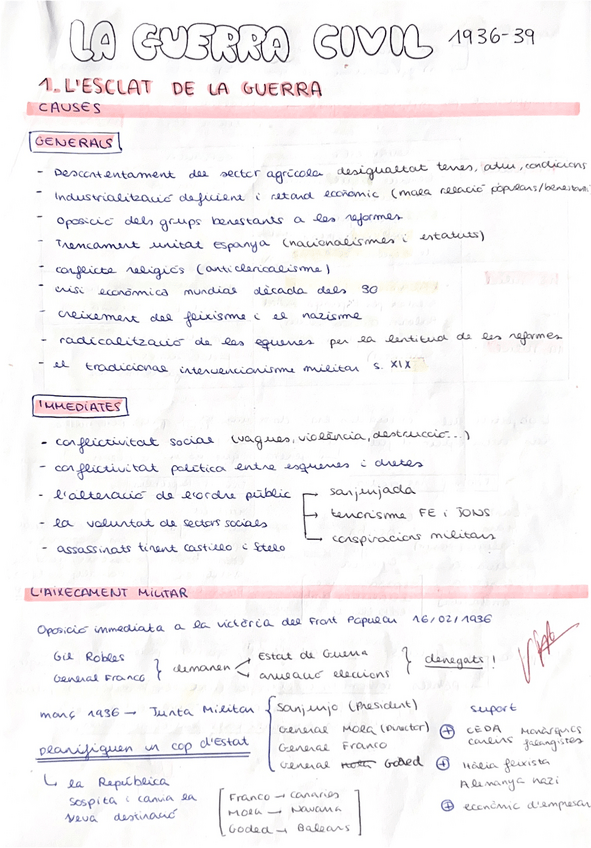 LA GUERRA CIVIL 1936-39
1. L'ESCLAT DE LA GUERRA
CAUSES
GENERALS
- Descontentament del sector agrícola desigualtat terres, atur, condicions
- Industrialització deficient i retard econòmic (mala relació populars/benestants
- Oposició dels grups benestants a les reformes
- Trencament unitat Espanya (nacionalismes i estatuts)
- conflicte religiós (anticlericalisme)
- crisi econòmica mundial dècada dels 30
- creixement del feixisme i el nazisme
- radicalització de les equerres per la lentitud de les reformes
- el tradicional intervencionisme militar s. XIX
IMMEDIATES
- conflictivitat social (vagues, violència, destrucció...)
- conflictivitat política entre esquerres i dretes
- l'alteració de l'ordre públic
- la voluntat de sectors socials
- assassinats tinent Castillo i
sanjurjada
terrorisme FE i JONS
conspiracions militars
L'AIXECAMENT MILITAR
Oposició immediata a la victòria del Front Popular 16/02/1936
Gil Robles
General Franco } demanen
Estat de Guerra
anulació eleccions } denegats!
març 1936 → Junta Militar
Sanjurjo (President)
General MOLA (Director)
General Franco
General Mola Goded
planifiquen un cop d'Estat
↳ la República
sospita i canvia la
seva destinació
Franco → Canàries
Mola → Navarra
Goded → Balears
suport
⊕ CEDA Monàrquics
carlins falangistes
⊕ Itàlia feixista
Alemanya nazi
⊕ econòmic d'empresari